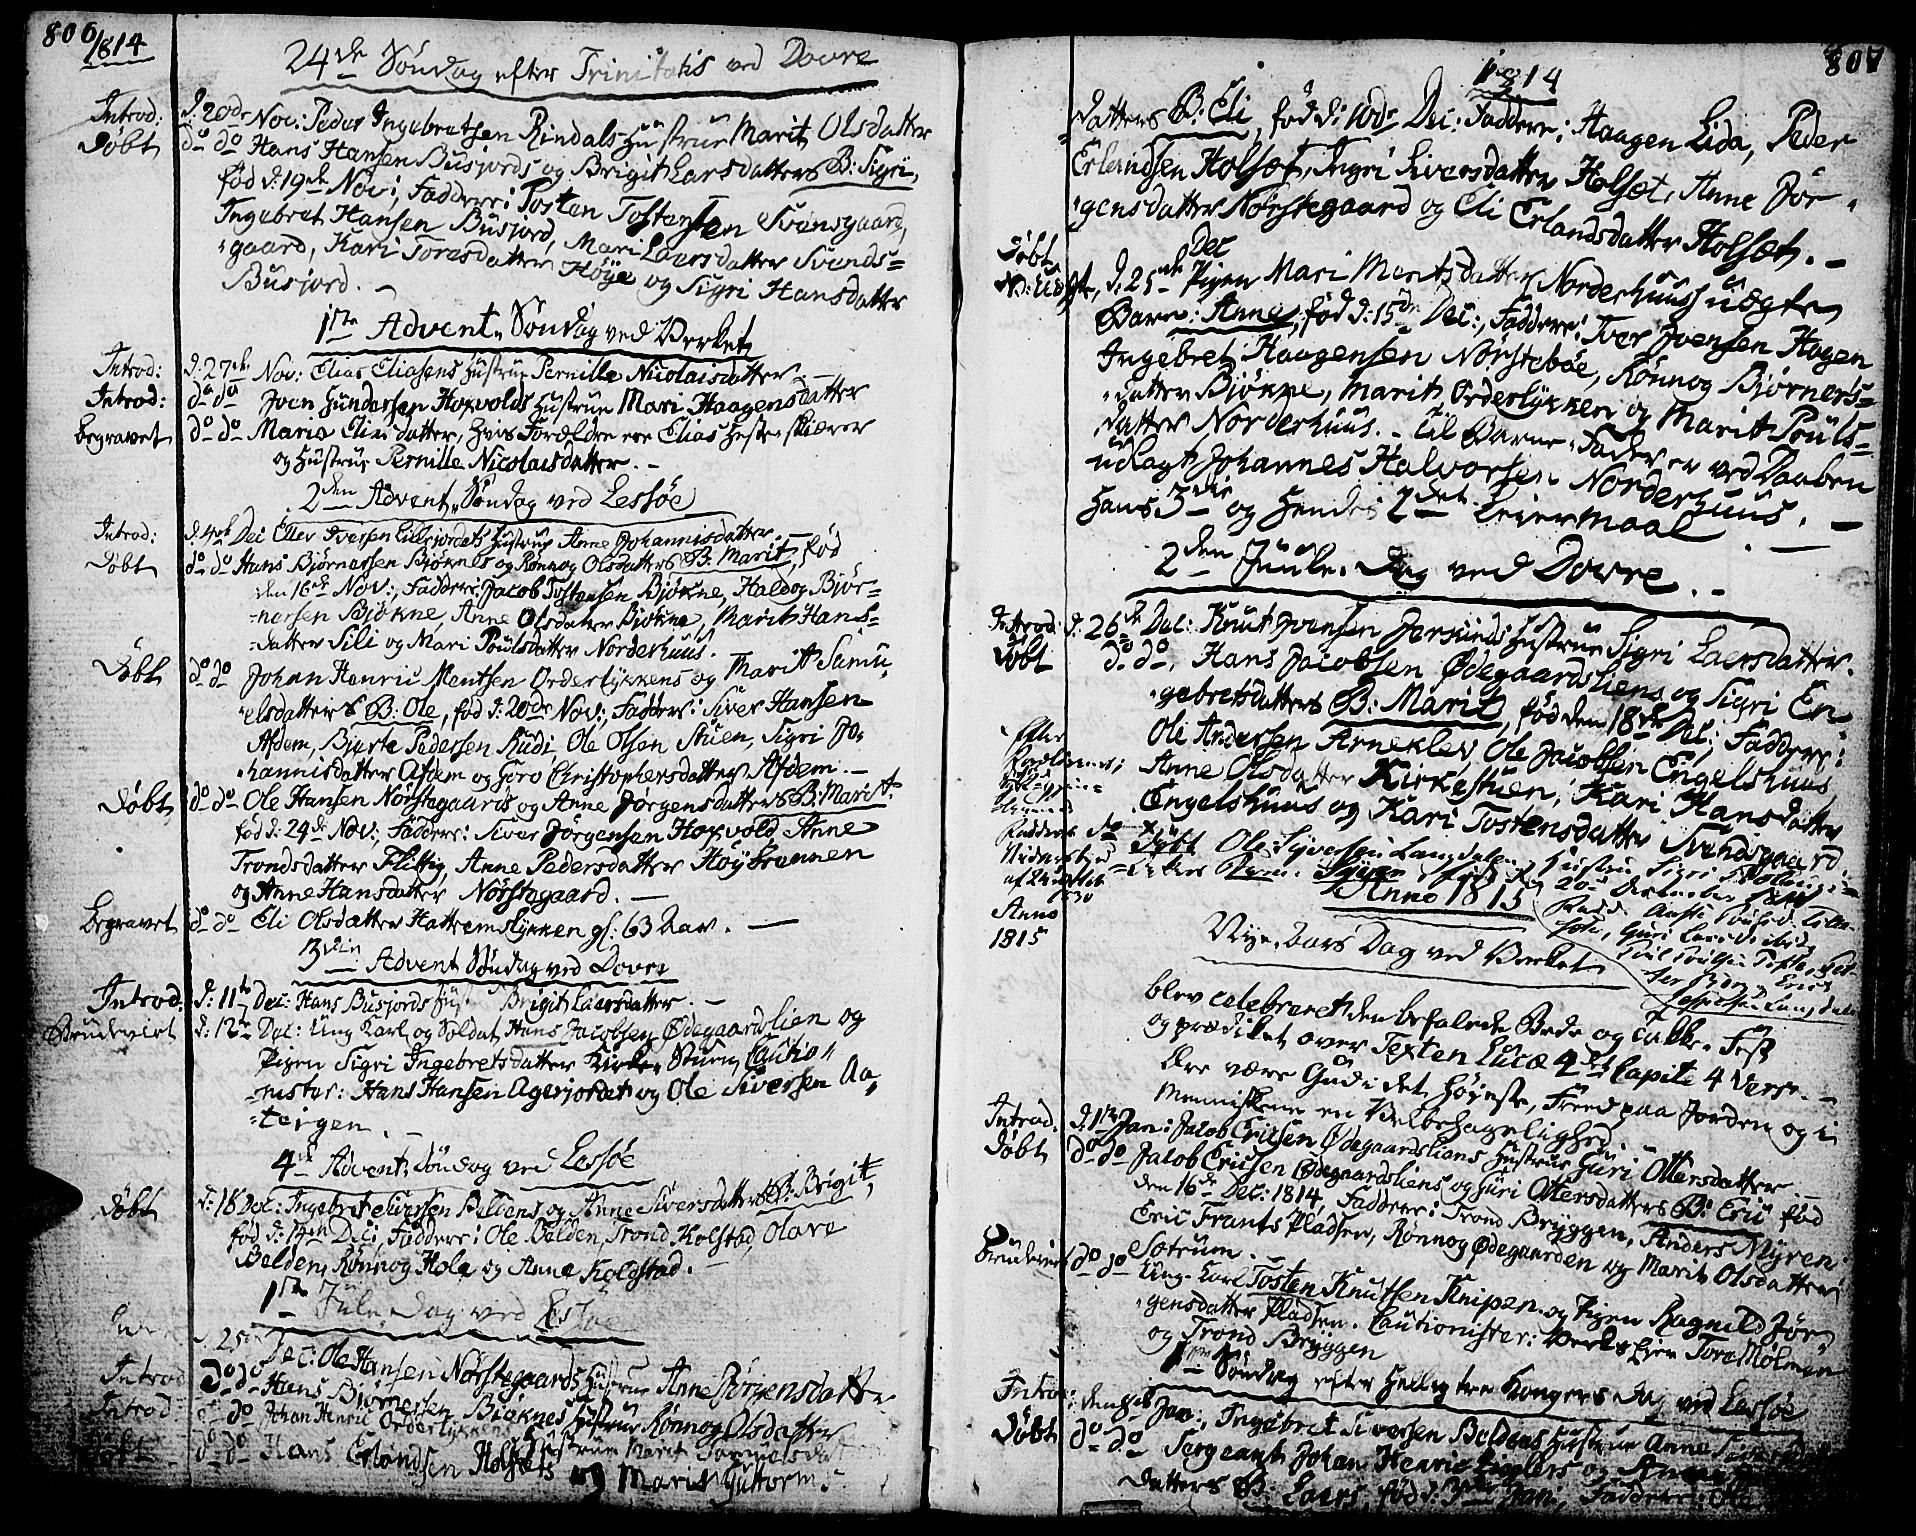 806
1814
24de Søndag efter Trinitatis ved Dovre
Introd: d: 20de Nov: Peder Ingebretsen Rindals Hustrue Marit Olsdatter
Døbt do do Hans Hansen Busjords og Brigit Larsdatters B: Sigri,
fød d: 19de Nov:, Faddere: Tosten Tostensen Svensgaard,
Ingebret Hansen Busjord, Mari Laersdatter Svends=
gaard, Kari Toresdatter Høye og Sigri Hansdatter
Busjord. –
1ste Advent Søndag ved Verket
Introd: d: 27de Nov: Elias Eliasens Hustrue Pernille Nicolaisdatter. –
Introd: do do Joen Gundersen Hoxvolds Hustrue Mari Haagensdatter
begravet do do Maria Eliædatter, hvis Forældre ere Elias
og Hustrue Pernille Nicolaisdatter. –
2den Advent Søndag ved Lessøe
Introd: d: 4de Dec: Iversen Hustrue Anne Johannisdatter.
Døbt do do Hans Bjørnersen Bjøknes og Rønnog Olsdatters B: Marit, fød
den 16de Nov:, Faddere: Jacob Tostensen Bjøkne, Haldog Bjør=
nersen Bjøkne, Anne Olsdatter Bjøkne, Marit Hans=
datter Sili og Mari Poulsdatter Norderhuus.
Døbt do do Johan Henric Mentsen Orderlykkens og Marit Samu,
elsdatters B: Ole, fød d: 20de Nov:, Faddere: Siver Hansen
Afdem, Bjerte Pedersen Rudi, Ole Olsen Stuen, Sigri Jo,
hannisdatter Afdem og Goro Christophersdatter Afdem. –
Døbt do do Ole Hansen Nørstegaards og Anne Jørgensdatters B: Marit.
fød d: 24de Nov:, Faddere: Siver Jørgensen Hoxvold, Anne
Trondsdatter Flittig, Anne Pedersdatter Høybrennen
og Anne Hansdatter Nørstegaard. –
begravet do do Eli Olsdatter Hattremslykken gl: 63 Aar. –
3die Advent Søndag ved Dovre
Introd: d: 11te Dec: Hans Busjords Brigit Laersdatter. –
Brudeviet d: 12te Dec: Ung Karl og Soldat Hans Jacobsen Ødegaardslien og
Pigen Sigri Ingebretsdatter Kirke-Stuen, Cautio=
nister: Hans Hansen Agerjordet og Ole Siversen Aa,
teigen. –
4de Advent Søndag ved Lessøe
Døbt d: 18 Dec: Ingebret Siversen Beldens og Anne Siversdatters B: Brigit,
fød d: 14de Dec:, Faddere: Ole Belden, Trond Kolstad, Olave
Belden, Rønnog Hole og Anne Kolstad. –
1ste Jule-Dag ved Lessøe
d: 25de Dec: Ole Hansen Nørstegaards Hustrue Anne Jørgensdatter
Introd do do Hans Bjørnersen Bjøknes Hustrue Rønnog Olsdatter
Introd do do Johan Henric Orderlykkens Hustrue Marit Samuelsdat
Døbt do do Hans Erlandsen Holsets og Marit Guttorms
807
1814
datters B: Eli, fød d: 10de Dec: Faddere: Haagen Lida, Peder
Erlandsen Holset, Sigri Siversdatter Holset, Anne Jør,
gensdatter Nørstegaard og Eli Erlandsdatter Holset. –
Døbt
d: 25de Dec Pigen Mari Mentsdatter Norderhuus's uægte
Barn: Anne, fød d: 15de Dec:, Faddere: Iver Joensen Hagen
Ingebret Haagensen Nørstebøe, Rønnog Bjørners=
datter Bjøkne, Marit Orderlykken og Marit Pouls=
datter Norderhuus. – Til Barne-Fader er ved Daaben
udlagt Johannes Halvorsen Norderhuus.
Hans 3die og Hendes 2det Leiermaal. –
2den Juule-Dag ved Dovre. –
Introd: d: 26de Dec: Knut Joensen Hustrue Sigri Laersdatter.
Døbt do do, Hans Jacobsen Ødegaardsliens og Sigri En=
gebretsdatters B: Marit, fød den 18de Dec:, Faddere:
Ole Andersen Arneklev, Ole Jacobsen Engelshuus,
Anne Olsdatter Kirkestuen, Kari Hansdatter
Engelshuus og Kari Tostensdatter Svendsgaard.
Efter
Anno
1815
Døbt Ole Syversen Langdalen Hustru Sigri
December
Guri Larsdatter
Anno 1815
Nye-Aars Dag ved Verket
blev celebreret den befalede Bede og Takke-Fest
og prædiket over Texten Lucæ 2det Capite 4 Vers. –
Ære være Gud i det Høieste, Freed paa Jorden og i
Menniskene en Velbehagelighed. –
Introd: d: 1ste Jan: Jacob Ericsen Ødegaardsliens Hustrue Guri Ottersdatter. –
Døbt do do Jacob Ericsen Ødegaardsliens og Guri Ottersdatters B: Eric fød
den 16de Dec: 1814, Faddere: Trond Bryggen, Anders Myren
Eric Frants Pladsen, Rønnog Ødegaarden og Marit Olsdatter
Sotrum. –
Brudeviet do do Ung-Karl Tosten Knutsen Knipen og Pigen Ragnild Jør
gensdatter Pladsen. Cautionister: Tore Mølmen
og Trond Bryggen
1ste Søndag efter Hellig tre Kongers Dag ved Lessøe
Introd: den 8de Jan:, Ingebret Siversen Beldens Hustrue Anne Siversdatter
Døbt do do Sergeant Johan Henric Zieglers og Anne
datters B: Laers, fød d: 3die Jan:, Faddere: Ole